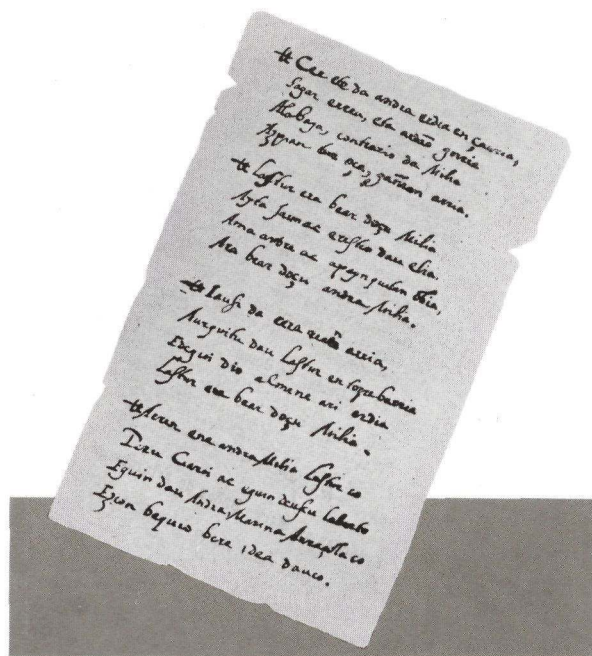 Cer ete da andra erdia en çauria,
Sagar errea, eta ardaõ gorria
Alabaya, contrario da Milia
Azpian lur oça, gañean arria.
Lastur era bear doçu Milia
Ayta Jaunac eresten dau elia.
Ama andre ac apaynquetan obia,
Ara bear doçu andra Milia.
Jausi da cerurean arria,
Aurquitu dau Lastur en torre barria
Edegui dio almena ari erdia
Lastur era bear doçu Milia.
Arren ene andra Milia Lastur co
Peru Garci ac eguin deusku laburto
Eguin dau Andra Marina Arrazola co
Ezcon bequio bere idea dauco.